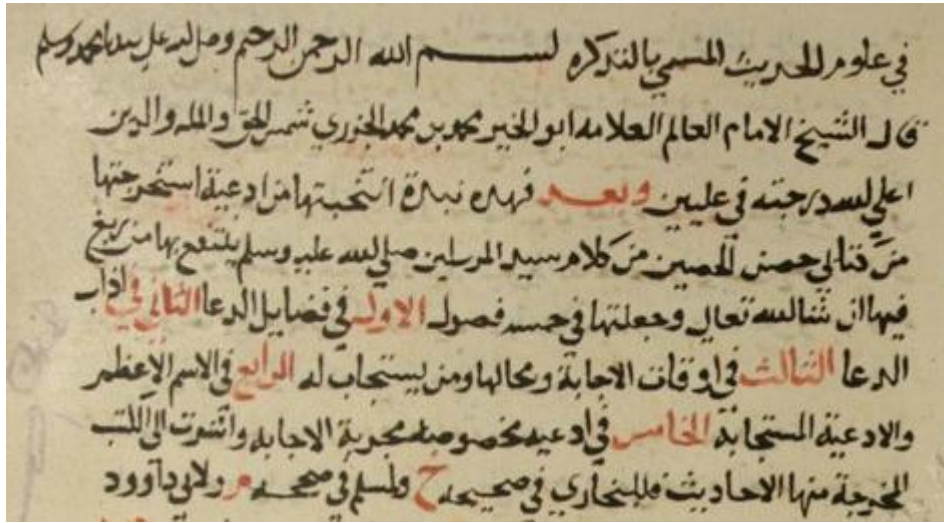 في علوم الحديث المسمي بالتذكره بسم الله الرحمن الرحيم وصل الله علي سيدنا محمد وسلم
قال الشيخ الامام العالم العلامه ابو الخير محمد بن محمد الجزري شمس الحق والمله والدين
اعلي الله درجته في عليين وبعد فهذه نبذة انتخبتها من ادعية استخرجتها
من كتابي حصن الحصين من كلام سيد المرسلين صلي الله عليه وسلم ينتفع بها من يرغب
فيها ان شا الله تعالي وجعلتها في خمسه فصول الاول في فضايل الدعا الثاني في اداب
الدعا الثالث في اوقات الاجابة ومحالها ومن يستجاب له الرابع في الاسم الاعظم
والادعية المستجابة الخامس في ادعيه مخصوصه مجربة الاجابه واشرت الي الكتب
المخرجة منها الاحاديث فللبخاري في صحيحه خ ولمسلم في صحيحه م ولابي داوود